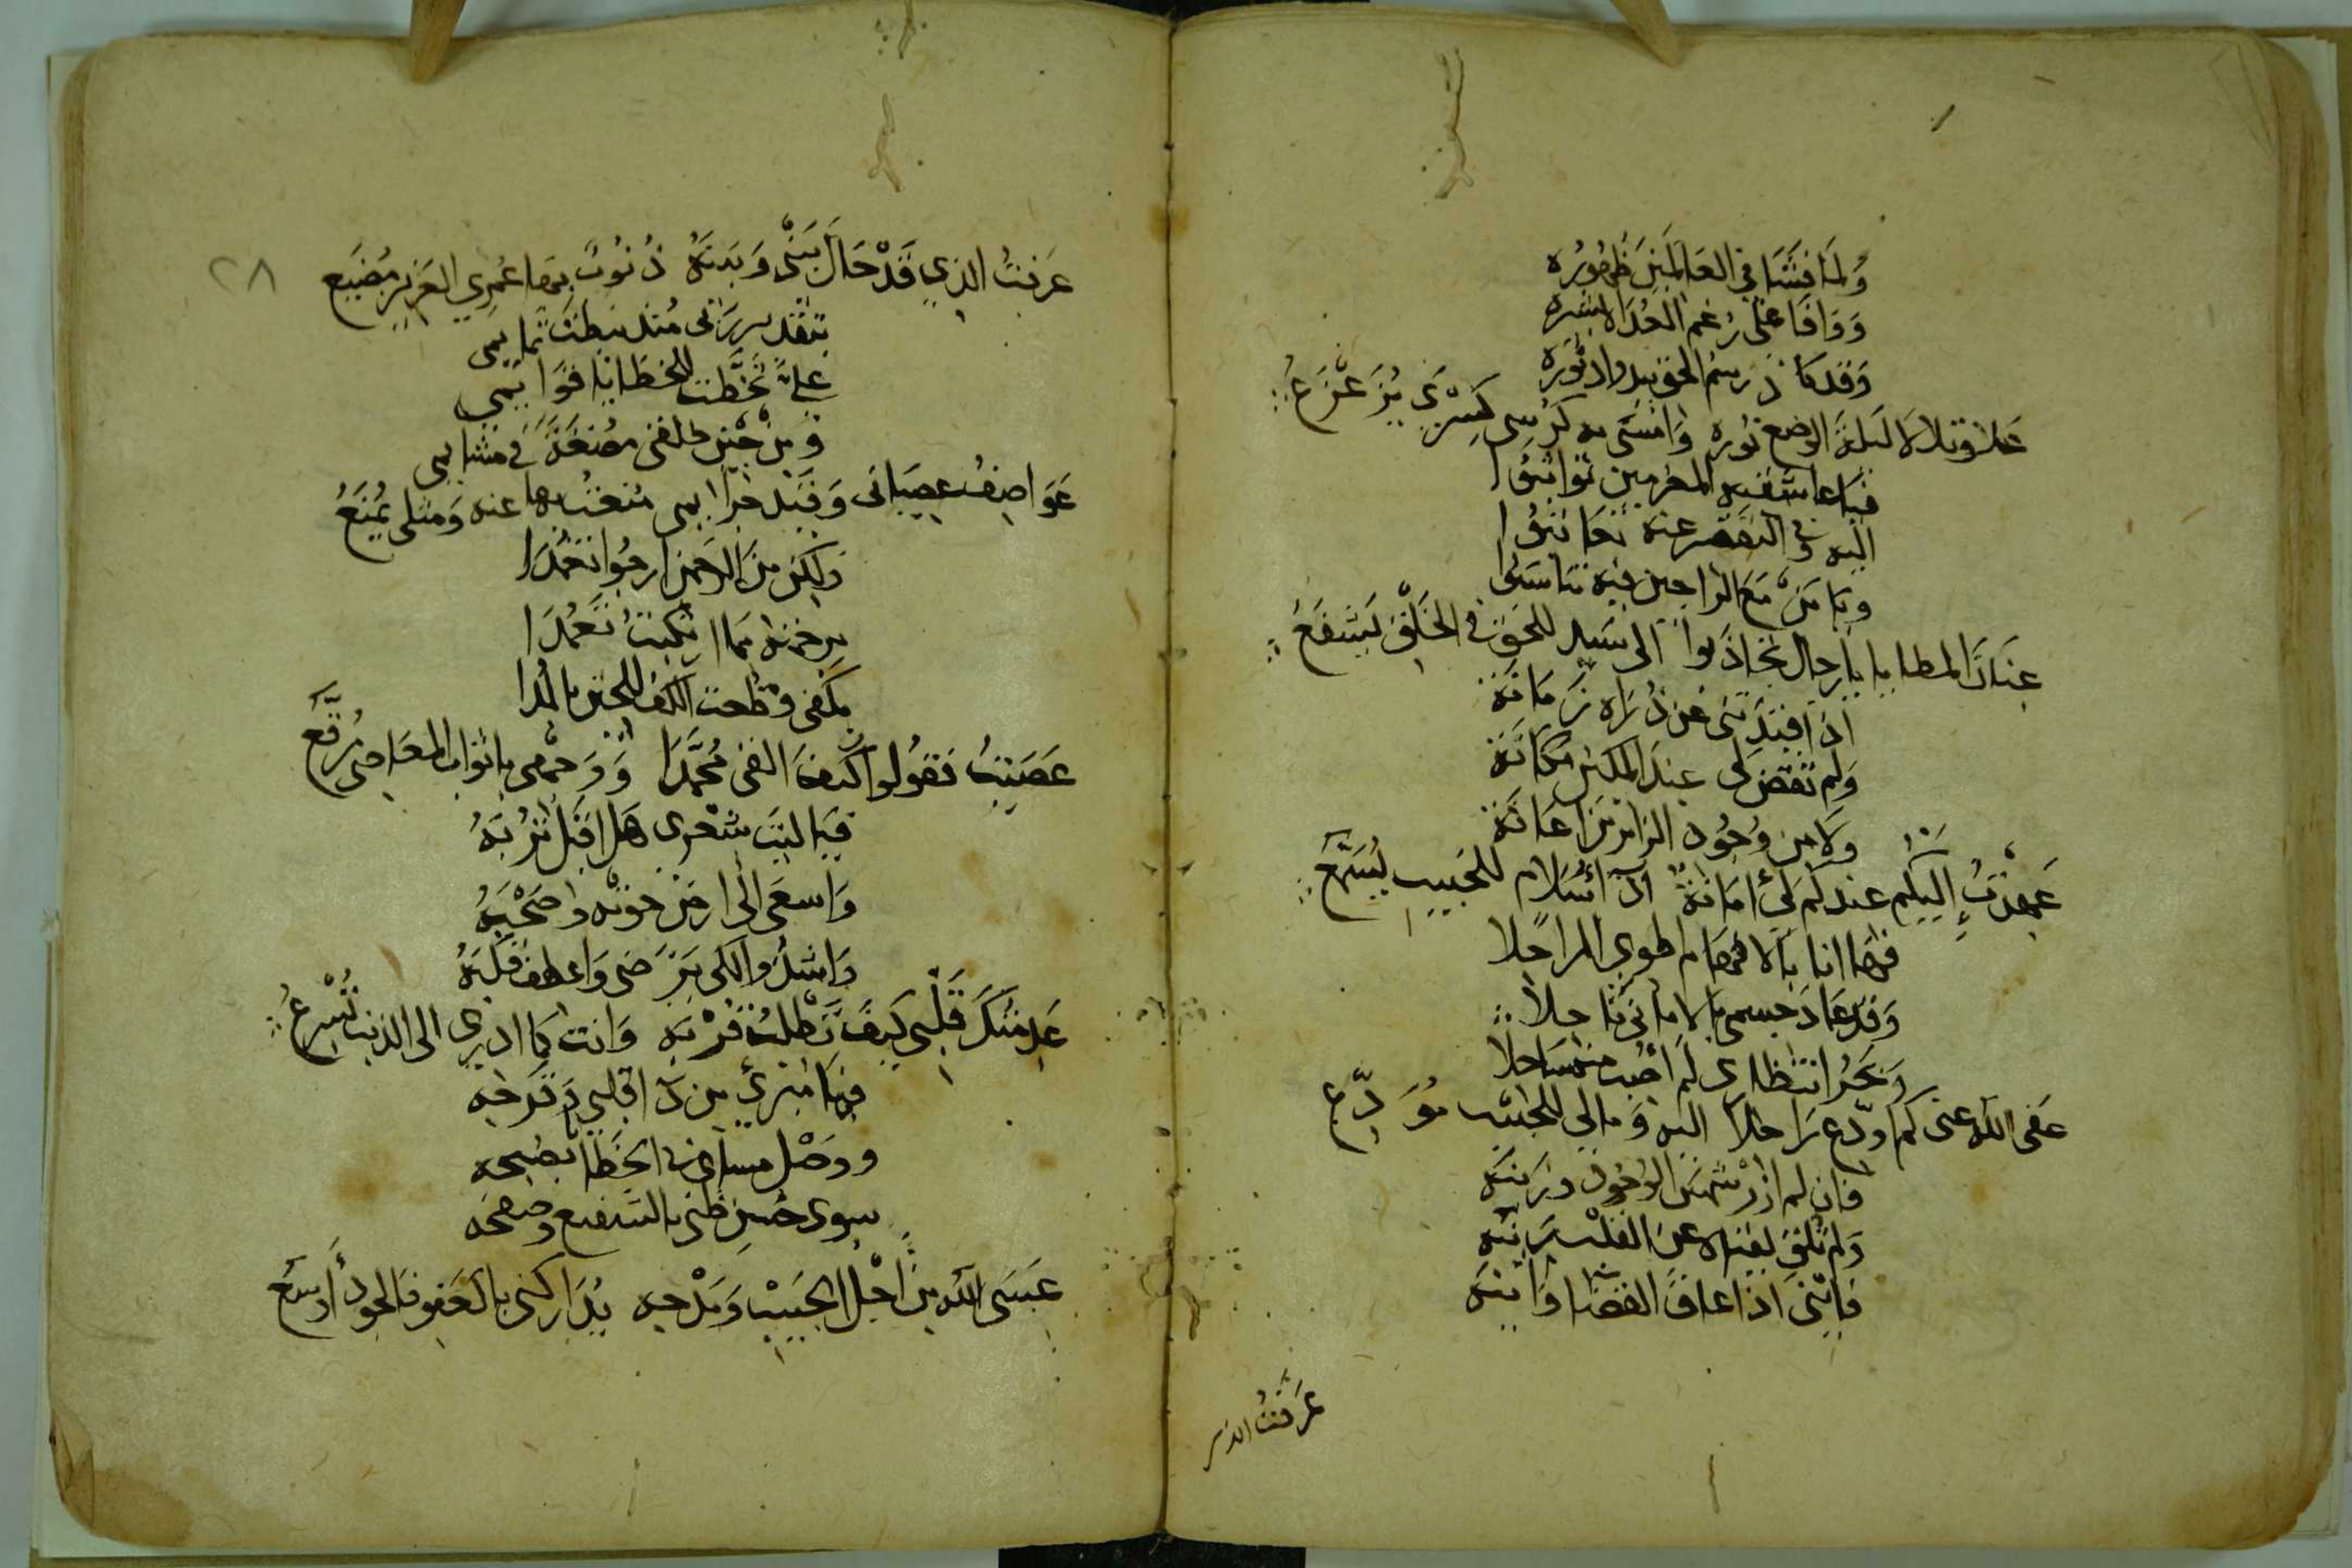 وَلمَا فَشَا في العَالمَينَ ظُهُورُه
وَوَافَا عَلى رغم العُدَاه بشيره
وَقد كان رسمُ الحق يبدوا دثوره
عَلا وتلالا ليلة الوضع نوره وَامسَى به كرسى كِسْرَى يُزَعْزَعُ
فيا عاشقيه المغرمين توا ثبُوا
اليه وفي التقصير عنه تعاتبُوا
ويا مَنْ مَعَ الراجين فيه تناسَبُوا
عِنَانَ المطايا يا رجال تجاذبوا الى سَيد للحق في الخَلْقِ يَشْفَعُ
اذا قيّدتنى عن ذُرَاه زَمانة
وَلم تقض لى عند المكين مكانَة
وَلا من وُجُود الزائرين اعانَة
عَهِدْتُ اليكم عندكم لى أمَانةٌ اذا سَلام للحبيب يُسَرّعُ
فهَا انا بالاوهام اطوى المراحِلا
وَقد عَاد جسمى بالامانى ناحِلا
وَبَحْرُ انتظارى لم اجد منه سَاحلا
عَفى الله عنى كم اودّع رَاحلا اليه وَمالى للحبيب مُوَدِّع
فان لم ازر شمسَ الوُجُود وزينَهُ
وَلم تلق لقياه عن القلب رَينهُ
فانّنى اذا عاق القضَا وَابينَهُ
عَرفتُ الذى
عَرفتُ الذي قَدْ حَالَ بَيْنى وَبَيْنَهُ ذُنُوبٌ بهَا عُمري العَزيز مُضَيَع
٢٨
عليَّ تخَطَّت للخطَايا قوَايمى
وَمن حين خلقى مضغَةً في مشايمى
عَوَاصِفُ عصيَانى وَقبْل جرايمى مُنِعْتُ بها عنه وَمثلى يُمْنَعُ
وَلكن منَ الرحمن ارجُوا تغمُدَا
برحمته ممَا ارتكبتُ تعمُّدَا
بكفى وقطعت الكف للحين بالمُدا
عَصَيتُ فقولوا كيفَ القى مُحَمَّدَا وَوَجْهى باثواب المعَاصى مُرَقَّع
فيا ليتَ شعْرى هَل اقبل تُرْبَهُ
وَاسعَى الى ارض حَوتْه وَصَحْبَهُ
وَاشدُوا لكى يَرضى وَاعطف قلبَهُ
عَدمتكَ قَلْبى كيفَ تطلبُ قُرْبَه وَانتَ كما ادرى الى الذنب تُسْرعُ
فمَا مُبرئ من دَا قلبى وَقرحِه
وَوَصْل مسَاعى في الخطَا بصبحه
سوى حُسنِ ظنى بالشفيع وصفحه
عَسَى الله من اجْل الحَبيبْ وَمَدْحِه يُدَاركنى بالعَفو فَالجودُ أوسَع